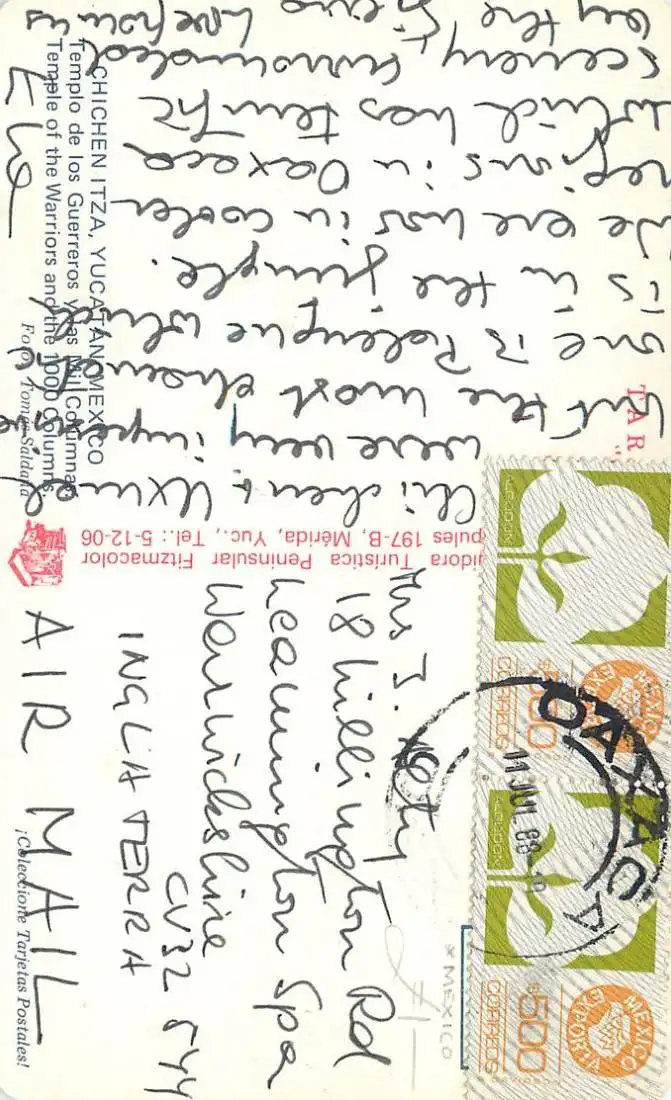 CHICHEN ITZA, YUCATAN, MEXICO
Templo de los Guerreros y las Mil Columnas
Temple of the Warriors and the 1000 Columns
Foto: Tomás Saldaña
Chichen + Uxmal
were very impressive
but the most
one is Palenque which
is in the jungle.
We are now in cooler
regions in Oaxaca
which has terrific
scenery surrounded
by the
Love from us
TAR
pules 197-B, Mérida, Yuc., Tel.: 5-12-06
idora Turística Peninsular Fitzmacolor
AIR MAIL
Mrs J.
18 Lillington Rd
Leamington Spa
Warwickshire
CV32
INGLATERRA
¡Coleccione Tarjetas Postales!
* MEXICO
ALGODON
CORREOS
$500
MEXICO EXPORTA
ALGODON
CORREOS
$500
MEXICO EXPORTA
OAXACA
11 JUL 88